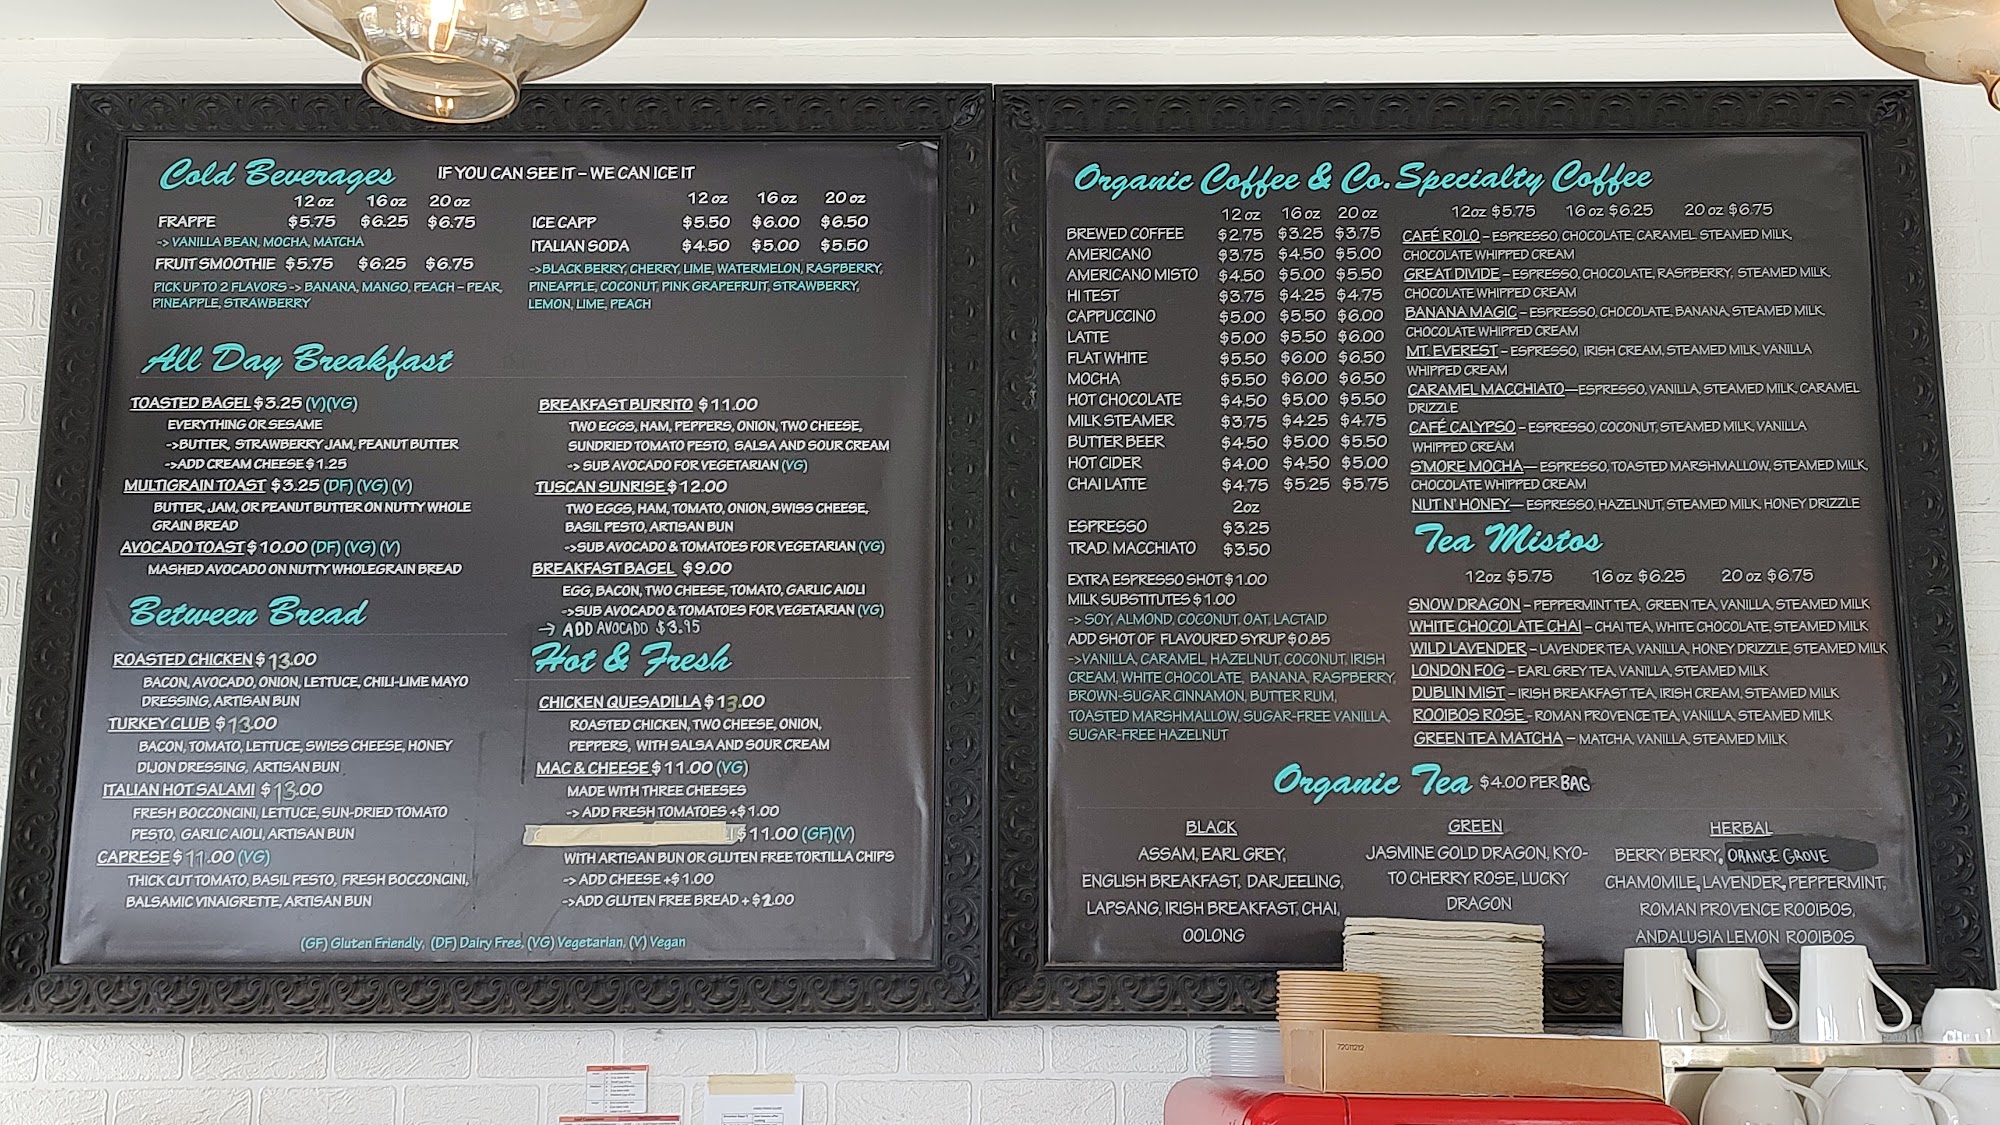 Cold Beverages IF YOU CAN SEE IT – WE CAN ICE IT
12 oz 16 oz 20 oz
FRAPPE $5.75 $6.25 $6.75
-> VANILLA BEAN, MOCHA, MATCHA
FRUIT SMOOTHIE $5.75 $6.25 $6.75
PICK UP TO 2 FLAVORS -> BANANA, MANGO, PEACH – PEAR,
PINEAPPLE, STRAWBERRY
12 oz 16 oz 20 oz
ICE CAPP $5.50 $6.00 $6.50
ITALIAN SODA $4.50 $5.00 $5.50
->BLACK BERRY, CHERRY, LIME, WATERMELON, RASPBERRY,
PINEAPPLE, COCONUT, PINK GRAPEFRUIT, STRAWBERRY,
LEMON, LIME, PEACH
All Day Breakfast
TOASTED BAGEL $3.25 (V)(VG)
EVERYTHING OR SESAME
->BUTTER, STRAWBERRY JAM, PEANUT BUTTER
->ADD CREAM CHEESE $1.25
MULTIGRAIN TOAST $3.25 (DF) (VG) (V)
BUTTER, JAM, OR PEANUT BUTTER ON NUTTY WHOLE
GRAIN BREAD
AVOCADO TOAST $10.00 (DF) (VG) (V)
MASHED AVOCADO ON NUTTY WHOLEGRAIN BREAD
BREAKFAST BURRITO $11.00
TWO EGGS, HAM, PEPPERS, ONION, TWO CHEESE,
SUNDRIED TOMATO PESTO, SALSA AND SOUR CREAM
-> SUB AVOCADO FOR VEGETARIAN (VG)
TUSCAN SUNRISE $12.00
TWO EGGS, HAM, TOMATO, ONION, SWISS CHEESE,
BASIL PESTO, ARTISAN BUN
->SUB AVOCADO & TOMATOES FOR VEGETARIAN (VG)
BREAKFAST BAGEL $9.00
EGG, BACON, TWO CHEESE, TOMATO, GARLIC AIOLI
->SUB AVOCADO & TOMATOES FOR VEGETARIAN (VG)
-> ADD AVOCADO $3.95
Between Bread
ROASTED CHICKEN $13.00
BACON, AVOCADO, ONION, LETTUCE, CHILI-LIME MAYO
DRESSING, ARTISAN BUN
TURKEY CLUB $13.00
BACON, TOMATO, LETTUCE, SWISS CHEESE, HONEY
DIJON DRESSING, ARTISAN BUN
ITALIAN HOT SALAMI $13.00
FRESH BOCCONCINI, LETTUCE, SUN-DRIED TOMATO
PESTO, GARLIC AIOLI, ARTISAN BUN
CAPRESE $11.00 (VG)
THICK CUT TOMATO, BASIL PESTO, FRESH BOCCONCINI,
BALSAMIC VINAIGRETTE, ARTISAN BUN
Hot & Fresh
CHICKEN QUESADILLA $13.00
ROASTED CHICKEN, TWO CHEESE, ONION,
PEPPERS, WITH SALSA AND SOUR CREAM
MAC & CHEESE $11.00 (VG)
MADE WITH THREE CHEESES
-> ADD FRESH TOMATOES +$1.00
$11.00 (GF)(V)
WITH ARTISAN BUN OR GLUTEN FREE TORTILLA CHIPS
-> ADD CHEESE +$1.00
->ADD GLUTEN FREE BREAD + $2.00
(GF) Gluten Friendly, (DF) Dairy Free, (VG) Vegetarian, (V) Vegan
Organic Coffee & Co. Specialty Coffee
12 oz 16 oz 20 oz
BREWED COFFEE $2.75 $3.25 $3.75
AMERICANO $3.75 $4.50 $5.00
AMERICANO MISTO $4.50 $5.00 $5.50
HI TEST $3.75 $4.25 $4.75
CAPPUCCINO $5.00 $5.50 $6.00
LATTE $5.00 $5.50 $6.00
FLAT WHITE $5.50 $6.00 $6.50
MOCHA $5.50 $6.00 $6.50
HOT CHOCOLATE $4.50 $5.00 $5.50
MILK STEAMER $3.75 $4.25 $4.75
BUTTER BEER $4.50 $5.00 $5.50
HOT CIDER $4.00 $4.50 $5.00
CHAI LATTE $4.75 $5.25 $5.75
2oz
ESPRESSO $3.25
TRAD. MACCHIATO $3.50
EXTRA ESPRESSO SHOT $1.00
MILK SUBSTITUTES $1.00
-> SOY, ALMOND, COCONUT, OAT, LACTAID
ADD SHOT OF FLAVOURED SYRUP $0.85
->VANILLA, CARAMEL, HAZELNUT, COCONUT, IRISH
CREAM, WHITE CHOCOLATE, BANANA, RASPBERRY,
BROWN-SUGAR CINNAMON, BUTTER RUM,
TOASTED MARSHMALLOW, SUGAR-FREE VANILLA,
SUGAR-FREE HAZELNUT
12oz $5.75 16 oz $6.25 20 oz $6.75
CAFÉ ROLO – ESPRESSO, CHOCOLATE, CARAMEL. STEAMED MILK,
CHOCOLATE WHIPPED CREAM
GREAT DIVIDE – ESPRESSO, CHOCOLATE, RASPBERRY, STEAMED MILK,
CHOCOLATE WHIPPED CREAM
BANANA MAGIC – ESPRESSO, CHOCOLATE, BANANA, STEAMED MILK,
CHOCOLATE WHIPPED CREAM
MT. EVEREST – ESPRESSO, IRISH CREAM, STEAMED MILK, VANILLA
WHIPPED CREAM
CARAMEL MACCHIATO—ESPRESSO, VANILLA, STEAMED MILK, CARAMEL
DRIZZLE
CAFÉ CALYPSO – ESPRESSO, COCONUT, STEAMED MILK, VANILLA
WHIPPED CREAM
S'MORE MOCHA— ESPRESSO, TOASTED MARSHMALLOW, STEAMED MILK,
CHOCOLATE WHIPPED CREAM
NUT N' HONEY— ESPRESSO, HAZELNUT, STEAMED MILK, HONEY DRIZZLE
Tea Mistos
12oz $5.75 16 oz $6.25 20 oz $6.75
SNOW DRAGON – PEPPERMINT TEA, GREEN TEA, VANILLA, STEAMED MILK
WHITE CHOCOLATE CHAI – CHAI TEA, WHITE CHOCOLATE, STEAMED MILK
WILD LAVENDER – LAVENDER TEA, VANILLA, HONEY DRIZZLE, STEAMED MILK
LONDON FOG – EARL GREY TEA, VANILLA, STEAMED MILK
DUBLIN MIST – IRISH BREAKFAST TEA, IRISH CREAM, STEAMED MILK
ROOIBOS ROSE – ROMAN PROVENCE TEA, VANILLA, STEAMED MILK
GREEN TEA MATCHA – MATCHA, VANILLA, STEAMED MILK
Organic Tea $4.00 PER BAG
BLACK
ASSAM, EARL GREY,
ENGLISH BREAKFAST, DARJEELING,
LAPSANG, IRISH BREAKFAST, CHAI,
OOLONG
GREEN
JASMINE GOLD DRAGON, KYO-
TO CHERRY ROSE, LUCKY
DRAGON
HERBAL
BERRY BERRY, ORANGE GROVE
CHAMOMILE, LAVENDER, PEPPERMINT,
ROMAN PROVENCE ROOIBOS,
ANDALUSIA LEMON ROOIBOS
72011212